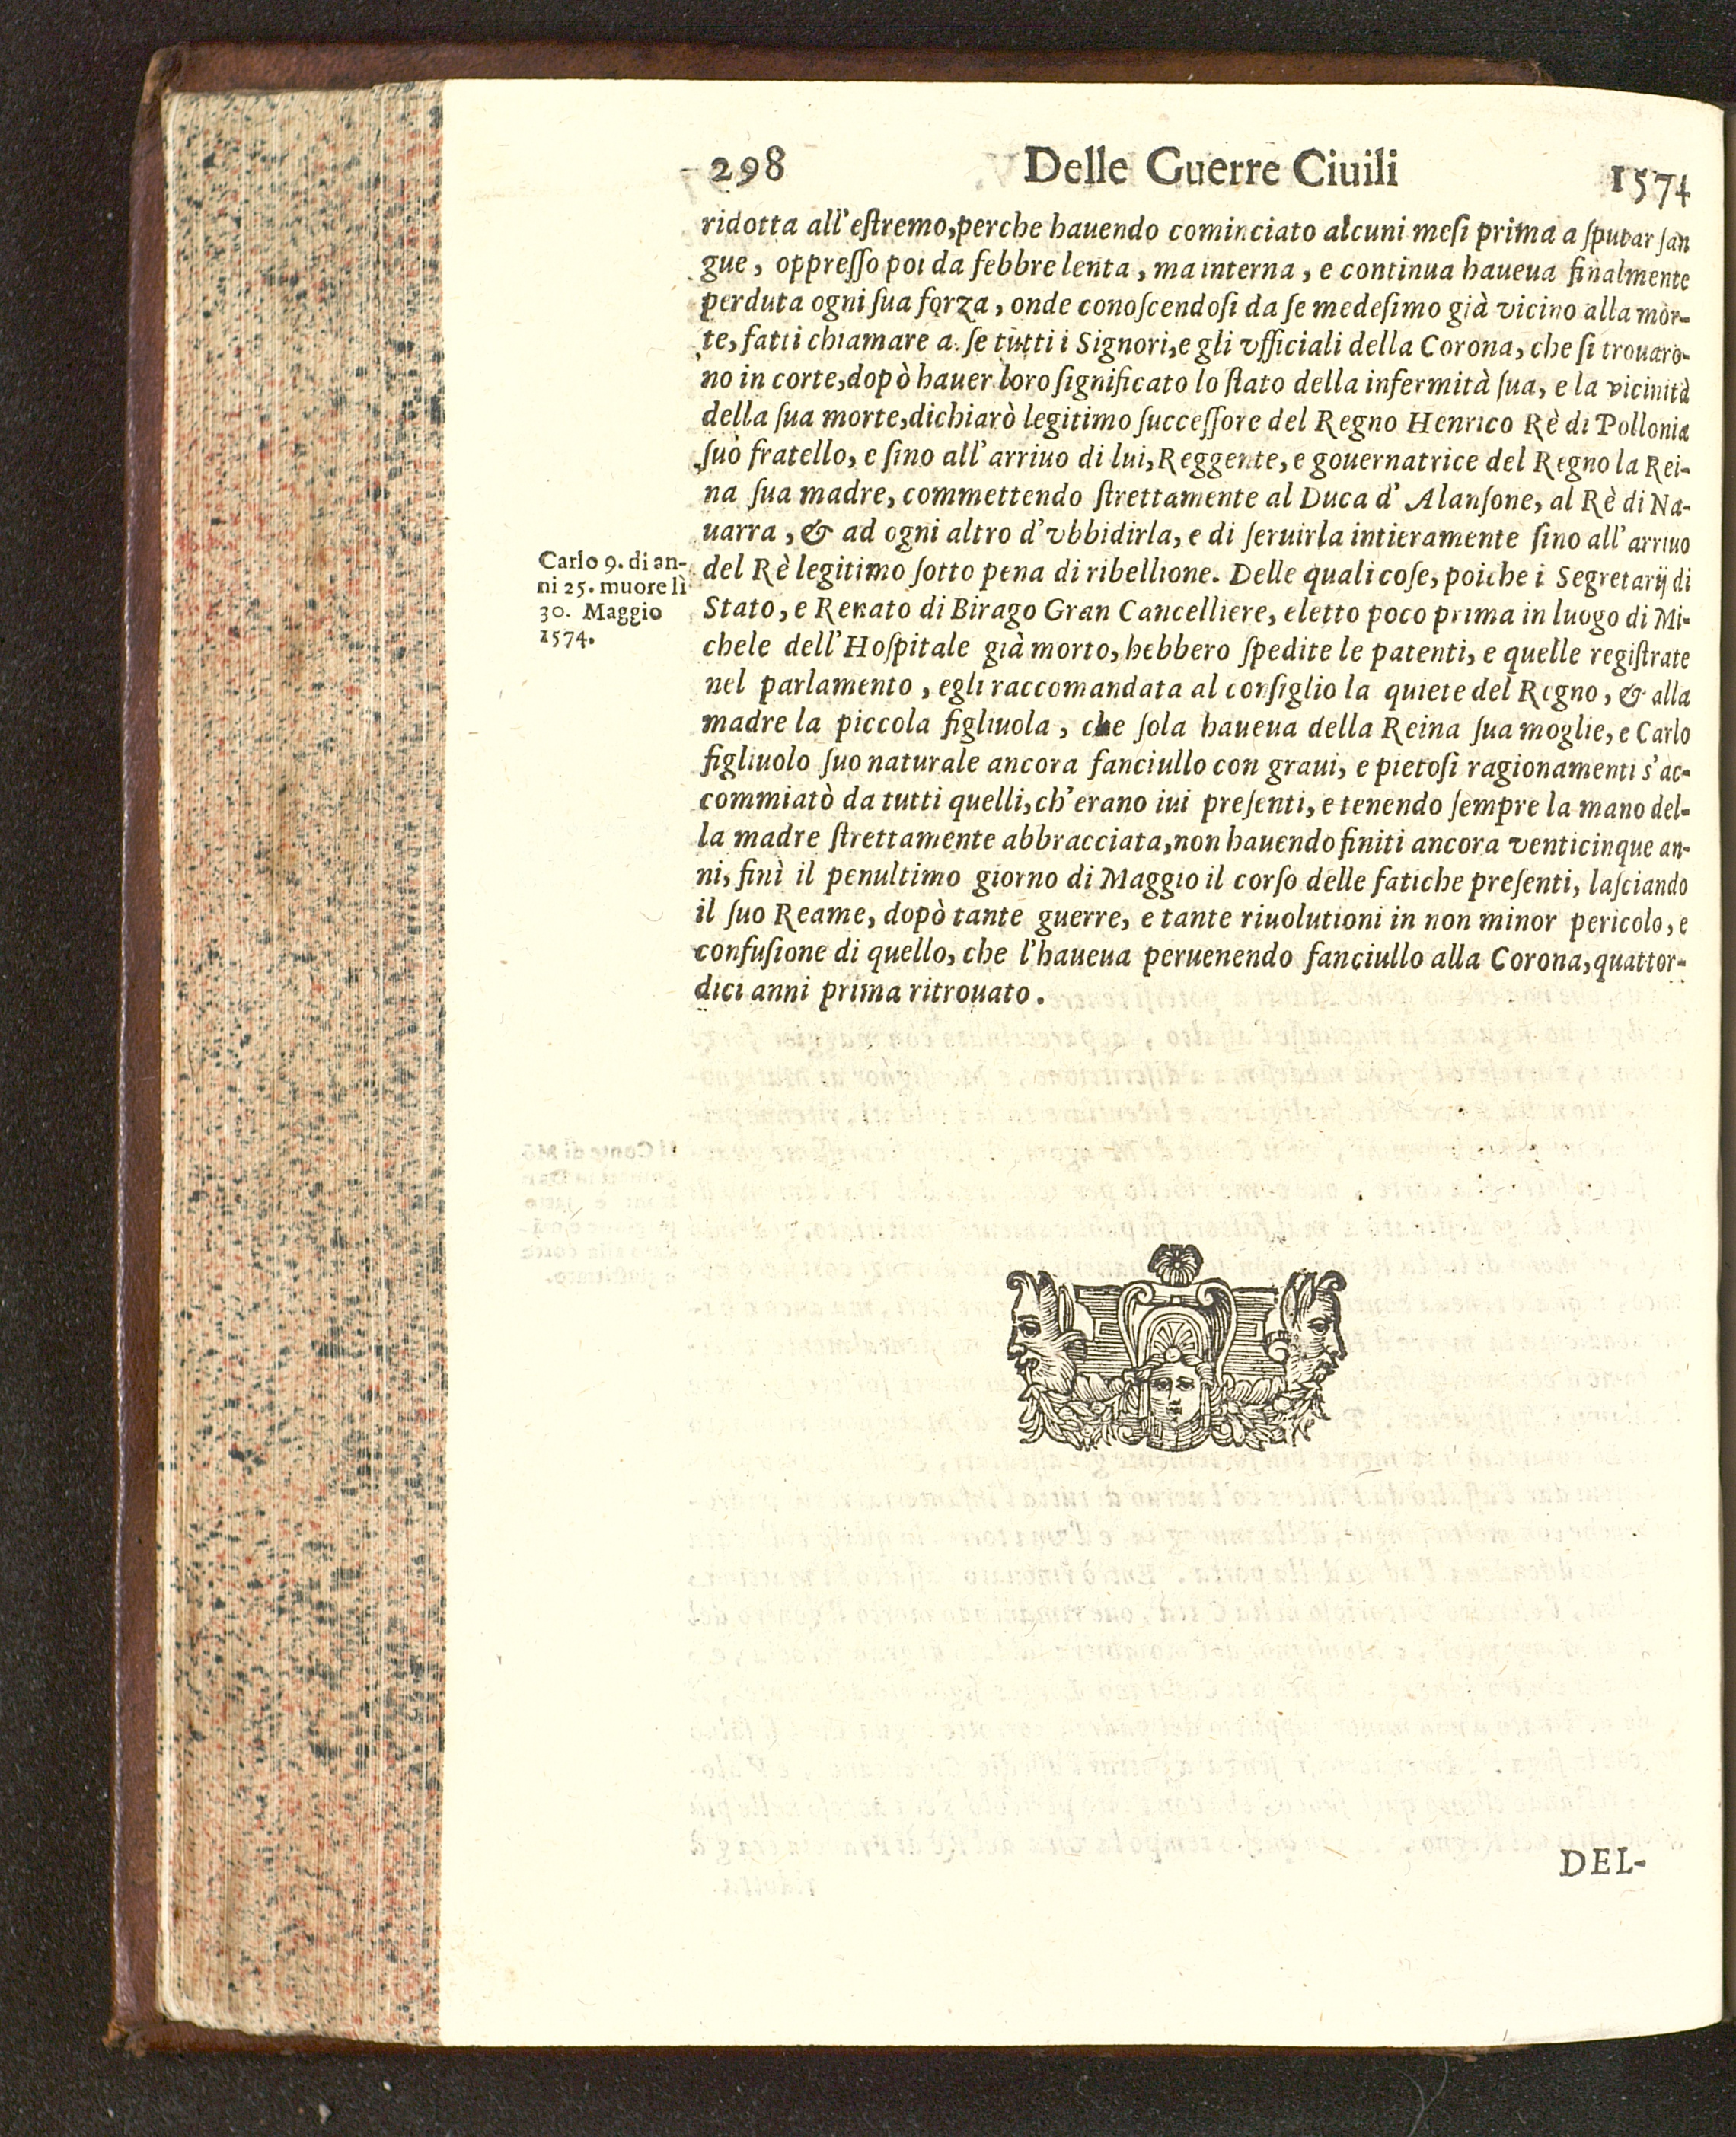 298 Delle Guerre Ciuili 1574
ridotta all'eſtremo, perche hauendo cominciato alcuni meſi prima a ſputar ſan
gue, oppreſſo poi da febbre lenta, ma interna, e continua haueua finalmente
perduta ogni ſua forza, onde conoſcendoſi da ſe medeſimo già vicino alla mor-
te, fatti chiamare a ſe tutti i Signori, e gli vfficiali della Corona, che ſi trouaro-
no in corte, dopò hauer loro ſignificato lo ſtato della infermità ſua, e la vicinità
della ſua morte, dichiarò legitimo ſucceſſore del Regno Henrico Rè di Pollonia
ſuo fratello, e ſino all'arriuo di lui, Reggente, e gouernatrice del Regno la Rei-
na ſua madre, commettendo ſtrettamente al Duca d'Alanſone, al Rè di Na-
uarra, & ad ogni altro d'vbbidirla, e di ſeruirla intieramente ſino all'arriuo
del Rè legitimo ſotto pena di ribellione. Delle quali coſe, poiche i Segretarij di
Stato, e Renato di Birago Gran Cancelliere, eletto poco prima in luogo di Mi-
chele dell'Hoſpitale già morto, hebbero ſpedite le patenti, e quelle regiſtrate
nel parlamento, egli raccomandata al conſiglio la quiete del Regno, & alla
madre la piccola figliuola, che ſola haueua della Reina ſua moglie, e Carlo
figliuolo ſuo naturale ancora fanciullo con graui, e pietoſi ragionamenti s'ac-
commiatò da tutti quelli, ch'erano iui preſenti, e tenendo ſempre la mano del-
la madre ſtrettamente abbracciata, non hauendo finiti ancora venticinque an-
ni, finì il penultimo giorno di Maggio il corſo delle fatiche preſenti, laſciando
il ſuo Reame, dopò tante guerre, e tante riuolutioni in non minor pericolo, e
confuſione di quello, che l'haueua peruenendo fanciullo alla Corona, quattor-
dici anni prima ritrouato.
Carlo 9. di an-
ni 25. muore lì
30. Maggio
1574.
DEL-